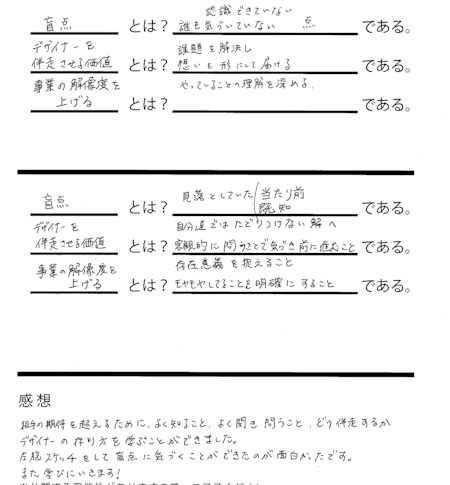 認識できていない
盲点 とは? 誰も気づいていない 点 である。
デザイナーを 課題を解決し
伴走させる価値 とは? 想いを形にして届ける である。
事業の解像度を やっていることの理解を深める。
上げる とは? である。
見落としていた 当たり前
盲点 とは? 既知 である。
デザイナーを 自分達ではたどりつけない解へ
伴走させる価値 とは? 客観的に問うことで気づき前に進むこと である。
事業の解像度を 存在意義を捉えること
上げる とは? モヤモヤしてることを明確にすること である。
感想
相手の期待を超えるために、よく知ること、よく聞き問うこと、どう伴走するか
デザイナーの在り方を学ぶことができました。
左脳スケッチをして盲点に気づくことができたのが面白かったです。
また学びにいきます!